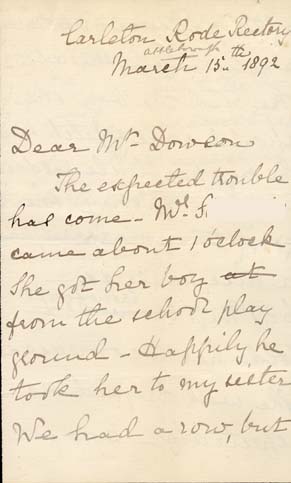 Carleton Rode Rectory
Attleborough
March 15th 1892
Dear Mr Dowson
The expected trouble
has come - Mrs S.
came about 1 o'clock
She got her boy at
from the school play
ground - Happily he
took her to my sister
We had a row, but